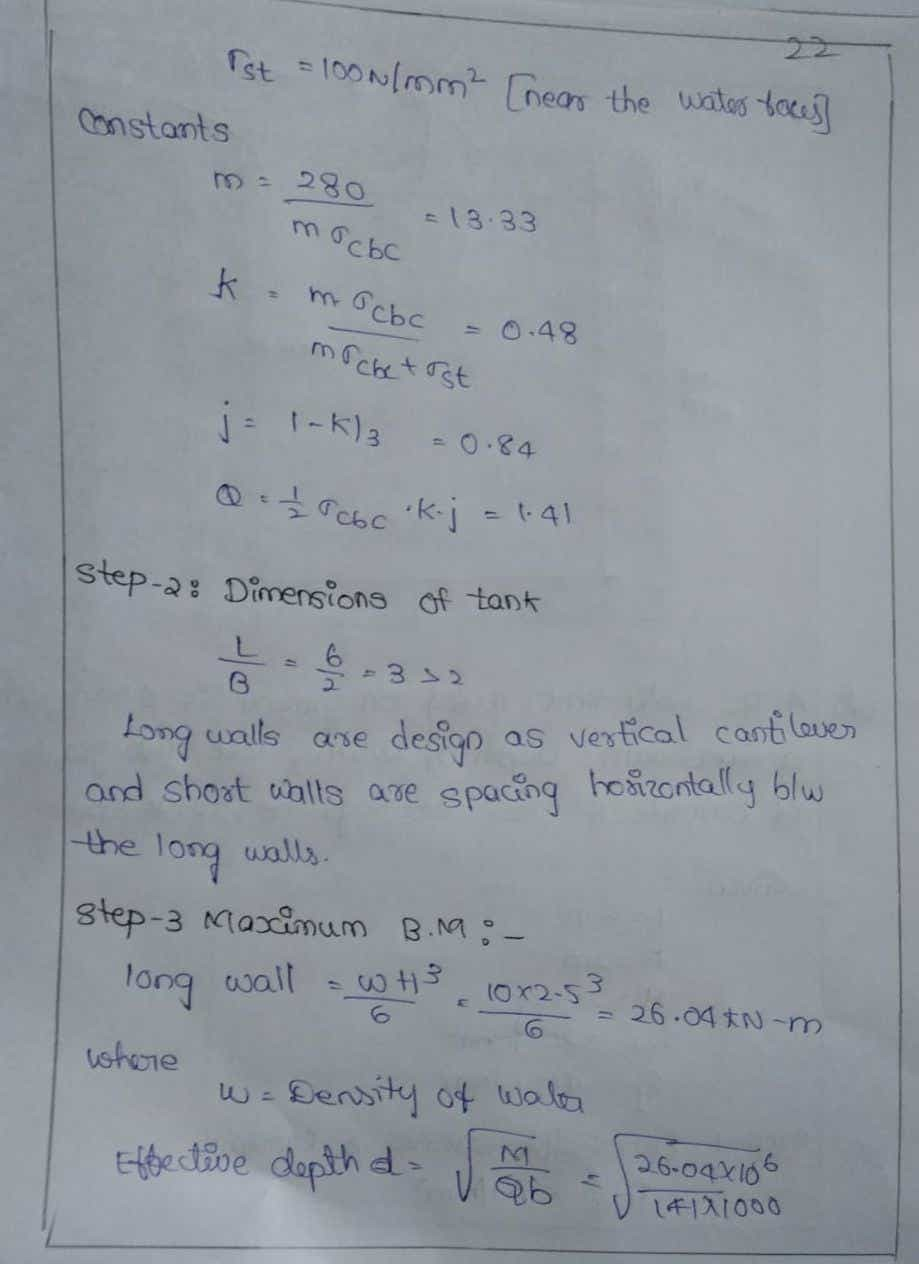 22
σst = 100N/mm² [near the water faces]
Constants
m = 280 / mσcbc = 13.33
k = mσcbc / mσcbc + σst = 0.48
j = 1-K/3 = 0.84
Q = 1/2 σcbc · k · j = 1.41
Step-2: Dimensions of tank
L/B = 6/2 = 3 > 2
Long walls are design as vertical cantilever
and short walls are spacing horizontally b/w
the long walls.
Step-3 Maximum B.M :-
long wall = wH³/6 = 10x2.5³/6 = 26.04 kN-m
where
w = Density of water
Effective depth d = √(M/Qb) = √(26.04x10⁶/1.41x1000)